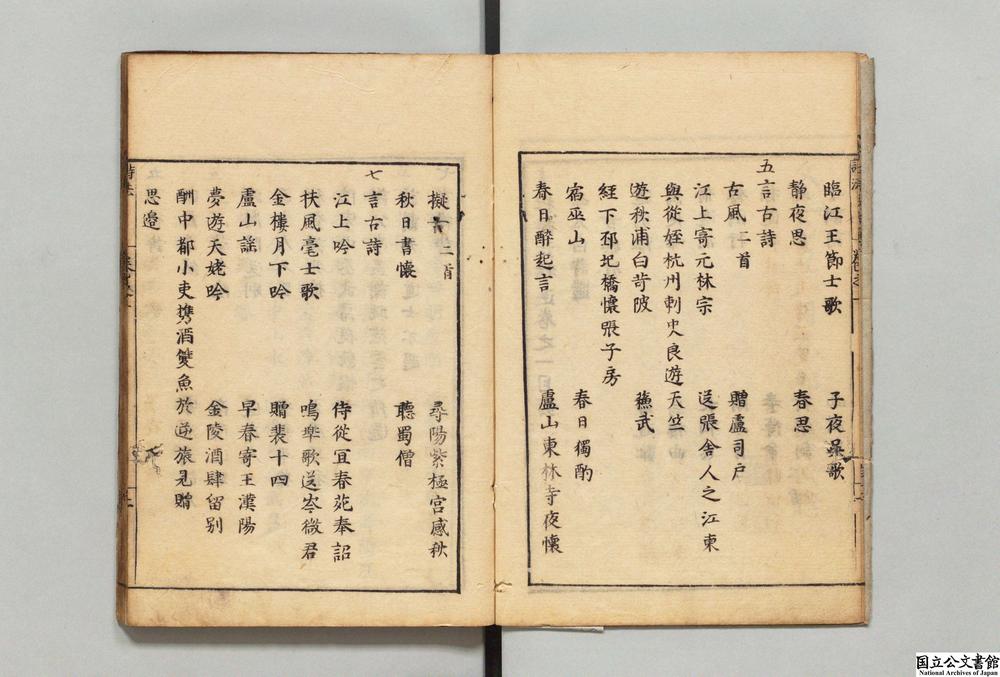 臨江王節士歌　子夜吳歌
静夜思　春思
五言古詩
古風二首　贈盧司戸
江上寄元林宗　送張舎人之江東
與從姪杭州刺史良遊天竺
遊秋浦白苛陂　蘓武
經下邳圯橋懷張子房
宿巫山　春日獨酌
春日醉起言　廬山東林寺夜懷
擬古二首　尋陽紫極宮感秋
秋日書懷　聽蜀僧
七言古詩
江上吟　侍從宜春苑奉詔
扶風毫士歌　鳴皐歌送岑徴君
金樓月下吟　贈裴十四
盧山謡　早春寄王漢陽
夢遊天姥吟　金陵酒肆留别
酬中都小吏携酒雙魚於逆旅見贈
思邉
国立公文書館
National Archives of Japan